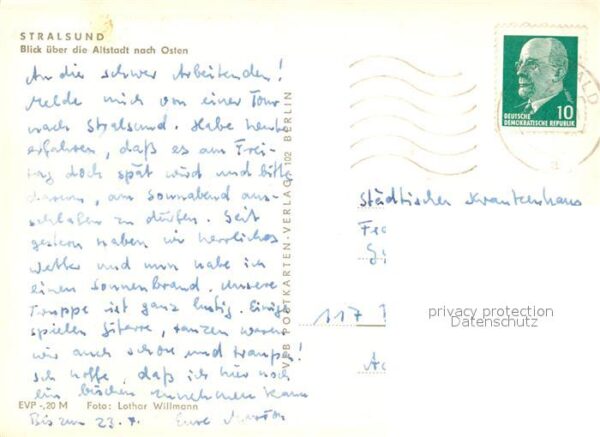 STRALSUND
Blick über die Altstadt nach Osten
An die schwer Arbeitenden!
Melde mich von einer Tour
nach Stralsund. Habe heute
erfahren, daß es am Frei-
tag doch spät wird und bitte
darum, am Sonnabend aus-
schlafen zu dürfen. Seit
gestern haben wir herrliches
Wetter und nun habe ich
einen Sonnenbrand. Unsere
Truppe ist ganz lustig. Einige
spielen Gitarre, tanzen waren
wir auch schon und trampen!
Ich hoffe, daß ich hier noch
ein bischen zunehmen kann
Bis zum 23. 7. Eure
EVP -,20 M Foto: Lothar Willmann
VEB POSTKARTEN-VERLAG 102 BERLIN
10
DEUTSCHE
DEMOKRATISCHE REPUBLIK
ALD
a
Städtisches Krankenhaus
117
privacy protection
Datenschutz